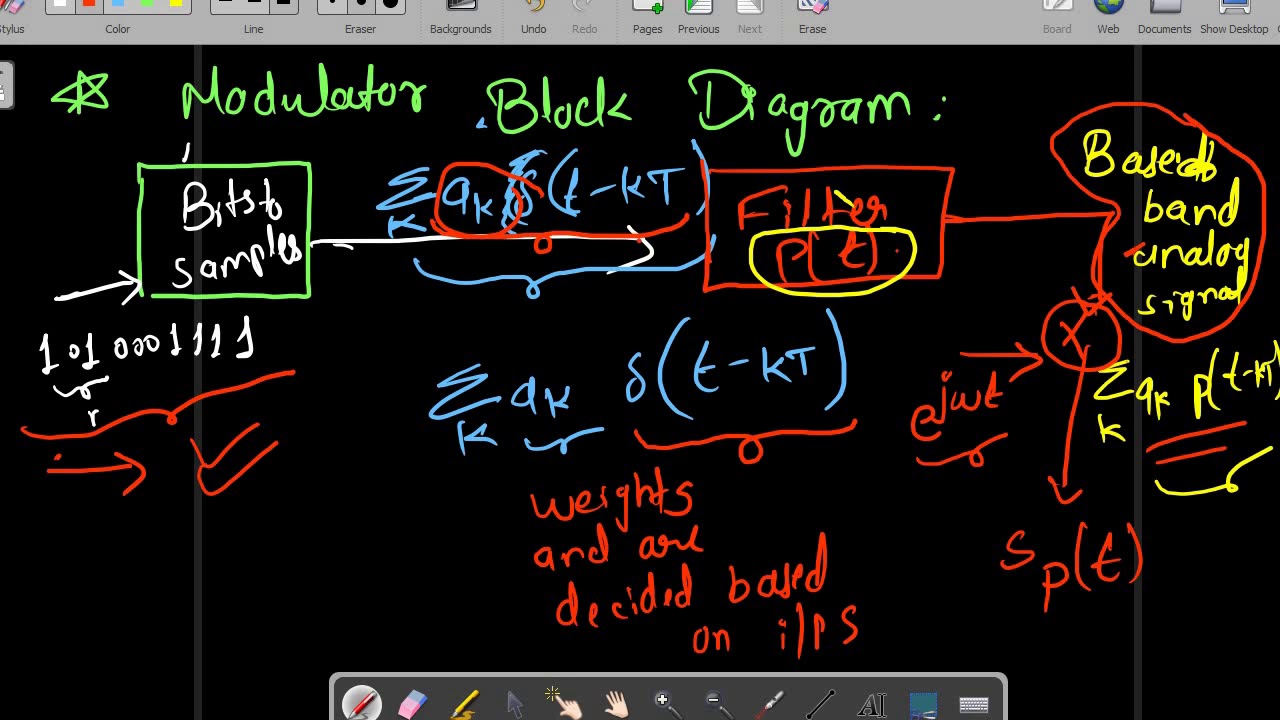 Stylus
Color
Line
Eraser
Backgrounds
Undo
Redo
Pages
Previous
Next
Erase
Board
Web
Documents
Show Desktop
Modulator Block Diagram:
Bits to
samples
∑ aₖ δ(t-kT)
K
Filter
p(t)
Baseb
band
analog
signal
1 0 1 0 0 0 1 1 1 1
r
∑ aₖ δ(t-kT)
K
e^jωt
X
∑ aₖ p(t-kT)
K
weights
and are
decided based
on i/ps
Sₚ(t)
AI